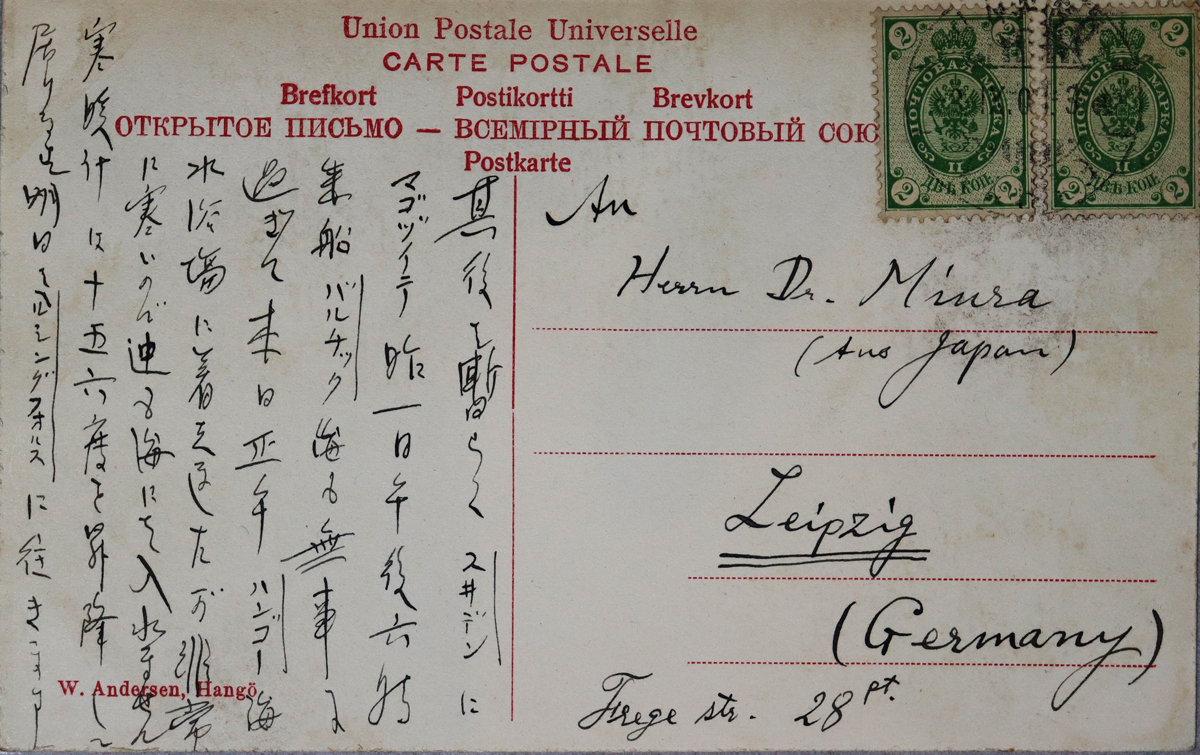 Union Postale Universelle
CARTE POSTALE
Brefkort Postikortti Brevkort
ОТКРЫТОЕ ПИСЬМО — ВСЕМІРНЫЙ ПОЧТОВЫЙ СОЮ
Postkarte
2 2
ПОЧТОВАЯ МАРКА
II
ДВѢ КОП.
2 2
2 2
ПОЧТОВАЯ МАРКА
II
ДВѢ КОП.
2 2
An
Herrn Dr. Miura
(Aus Japan)
Leipzig
(Germany)
Frege str. 28 pt.
其後を暫らくスヰデンに
マゴツイテ昨一日午後六時
乗船バルチック海も無事に
過ぎて本日正午ハンゴー海
水浴場に着きましたが非常
に寒いので迚も海には入水ません
寒暖計は十五六度を昇降し
居ります明日はヘルシングフォルスに往きます
W. Andersen, Hangö